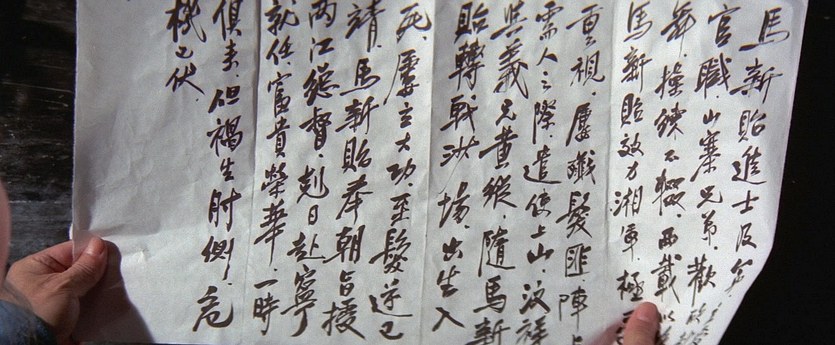 馬新貽進士及第
官職，山寨兄弟，歡
舞，操練不輟，兩載
馬新貽效力湘軍，極
重視，屢殲髮匪陣
需人之際，遣使上山，汶祥
與義兄黃縱，隨馬新
貽轉戰沙場，出生入
死，屢立大功，至髮逆已
靖，馬新貽奉朝旨授
两江總督，剋日赴寧
就任，富貴榮華，一時
俱來，但禍生肘側，危
機已伏，